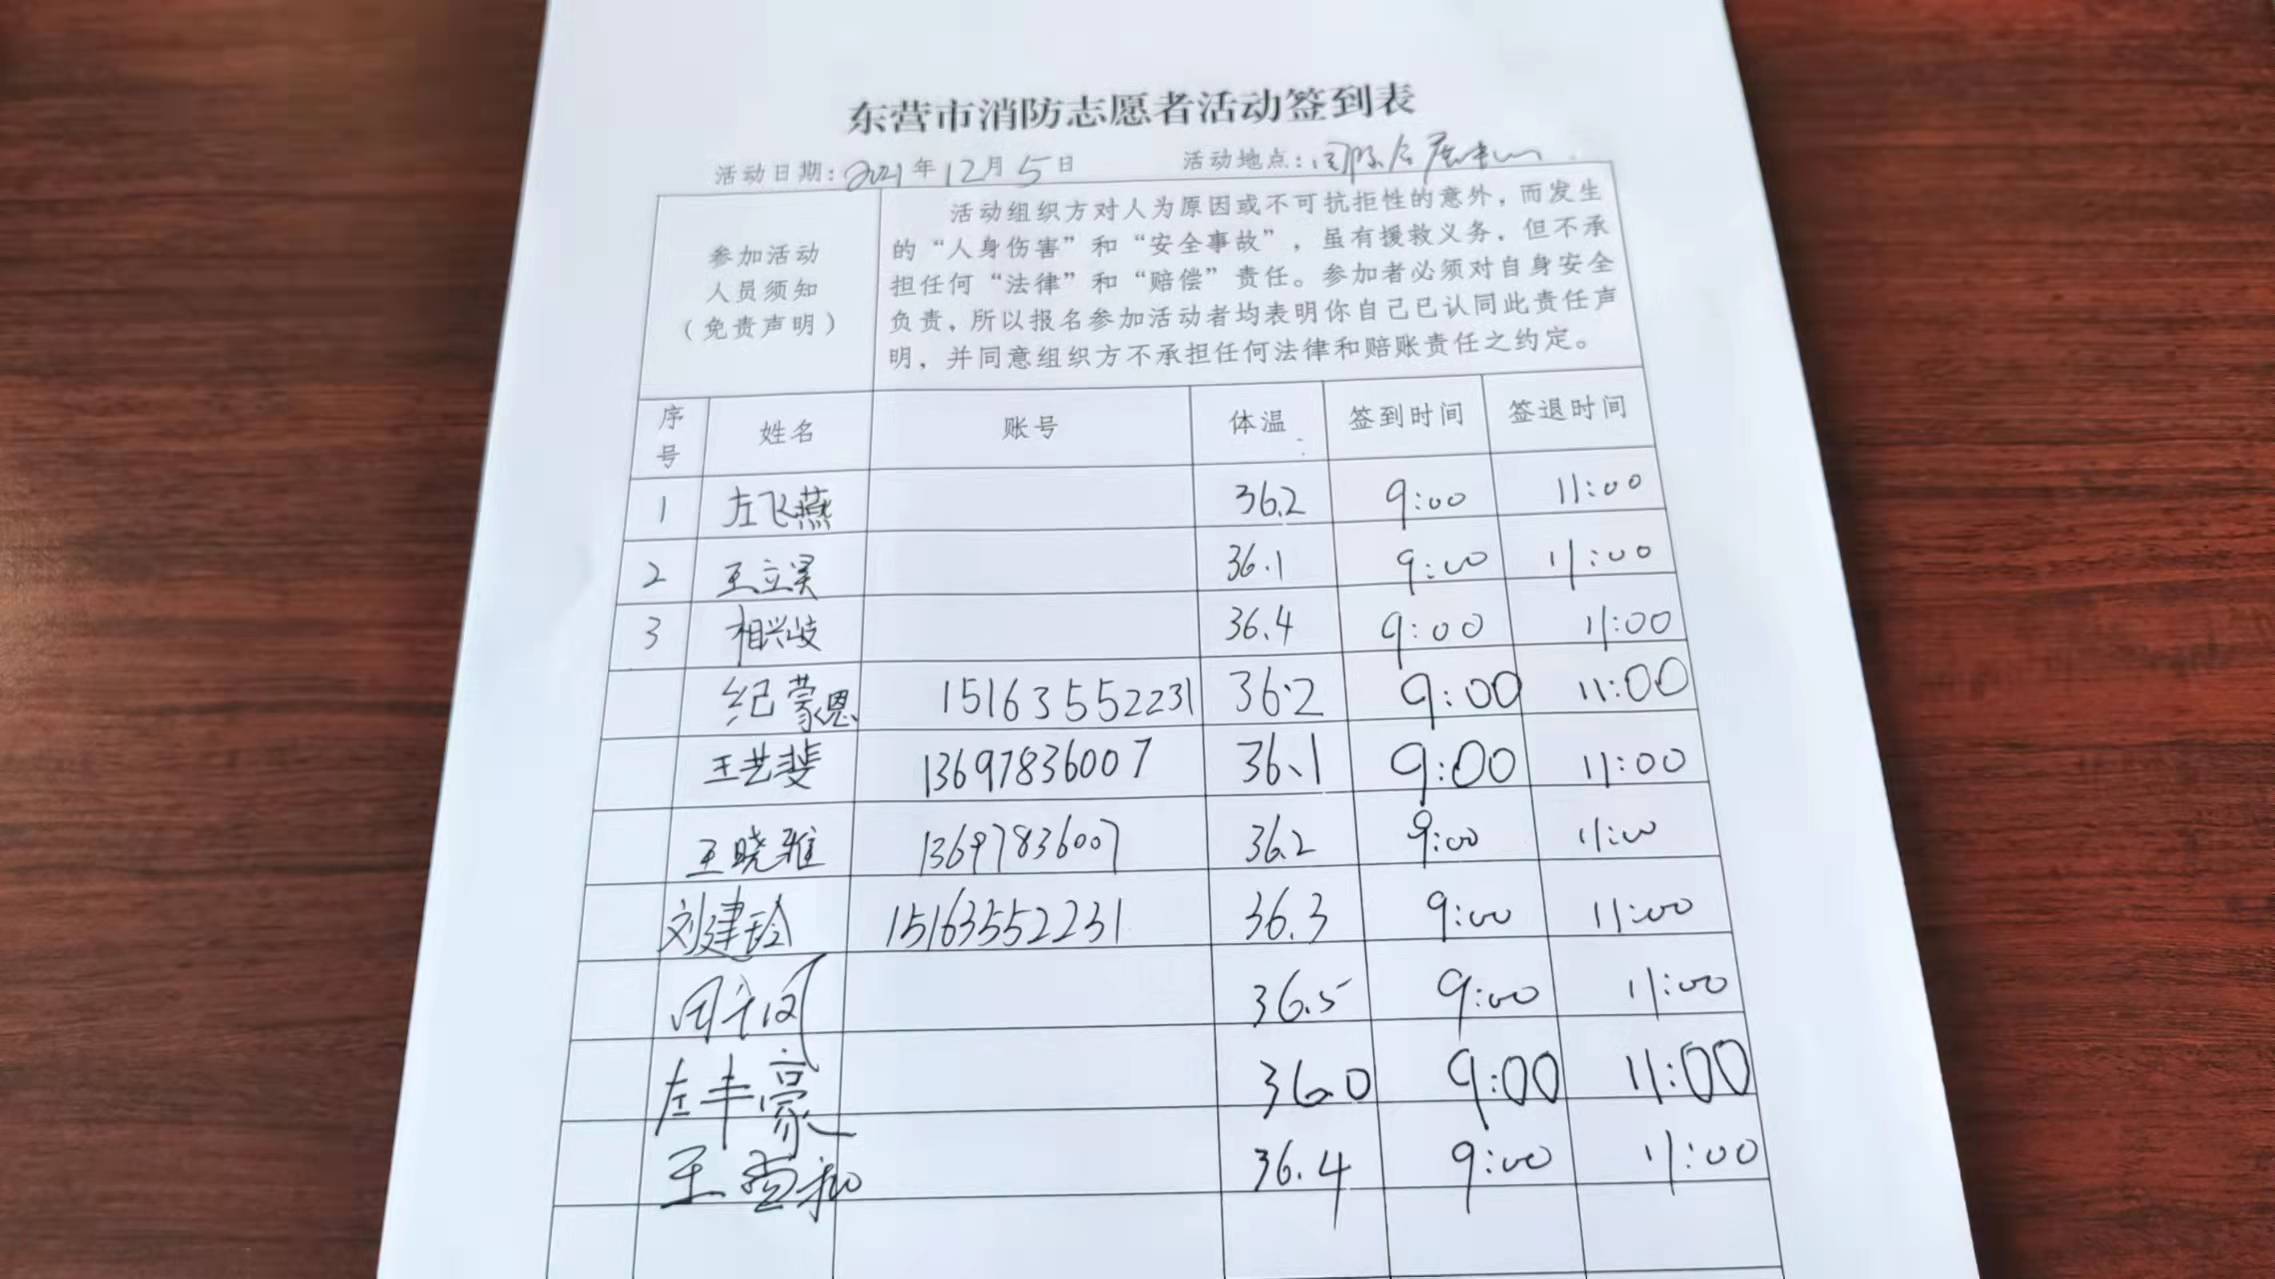 东营市消防志愿者活动签到表
活动日期:2021年12月5日 活动地点:国际会展中心
参加活动
人员须知
(免责声明)
活动组织方对人为原因或不可抗拒性的意外,而发生
的“人身伤害”和“安全事故”,虽有援救义务,但不承
担任何“法律”和“赔偿”责任。参加者必须对自身安全
负责,所以报名参加活动者均表明你自己已认同此责任声
明,并同意组织方不承担任何法律和赔账责任之约定。
序号 姓名 账号 体温 签到时间 签退时间
1 左飞燕 36.2 9:00 11:00
2 王立昊 36.1 9:00 11:00
3 相兴岐 36.4 9:00 11:00
纪蒙恩 15163552231 36.2 9:00 11:00
王艺斐 13697836007 36.1 9:00 11:00
王晓雅 13697836007 36.2 9:00 11:00
刘建玲 15163552231 36.3 9:00 11:00
36.5 9:00 11:00
左丰豪 36.0 9:00 11:00
王 36.4 9:00 11:00